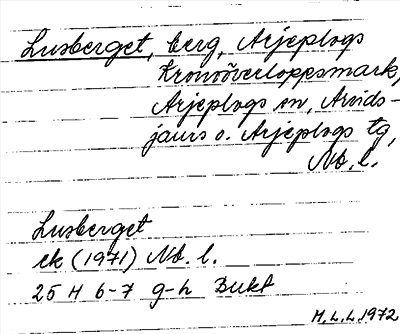 Lusberget, berg, Arjeplogs
Kronoöverloppsmark,
Arjeplogs sn, Arvids-
jaurs o. Arjeplogs tg,
Nb. l.
Lusberget
ek (1971) Nb. l.
25 H 6-7 g-h Bukt
H.L.L. 1972